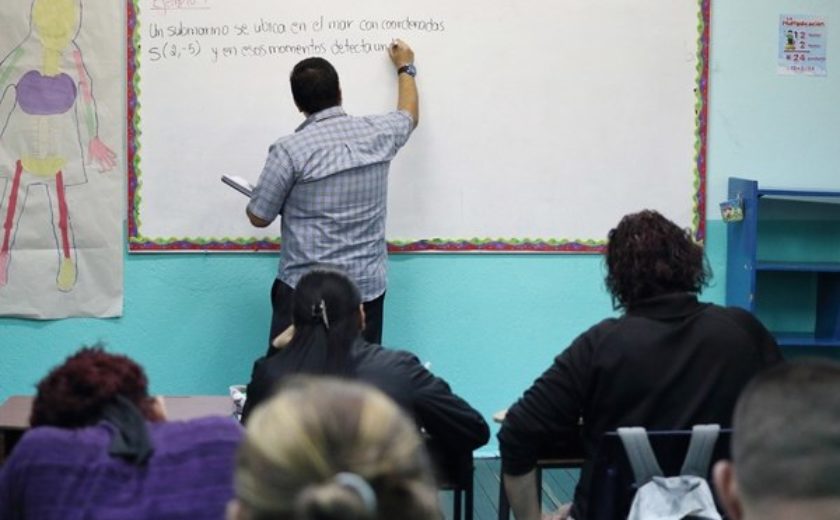 Ejemplo 1
Un submarino se ubica en el mar con coordenadas
S(2,-5) y en esos momentos detecta un
La Multiplicación
12
2
24